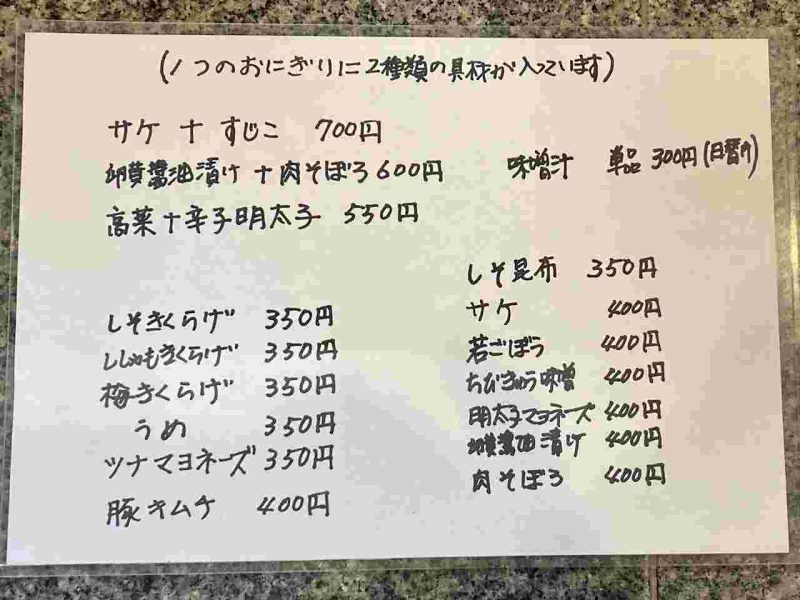 (1つのおにぎりに2種類の具材が入っています)
サケ + すじこ 700円
卵黄醤油漬け + 肉そぼろ 600円
味噌汁 単品 300円(日替り)
高菜 + 辛子明太子 550円
しそきくらげ 350円
ししゃもきくらげ 350円
梅きくらげ 350円
うめ 350円
ツナマヨネーズ 350円
豚キムチ 400円
しそ昆布 350円
サケ 400円
若ごぼう 400円
ちびきゅう味噌 400円
明太子マヨネーズ 400円
卵黄醤油漬け 400円
肉そぼろ 400円